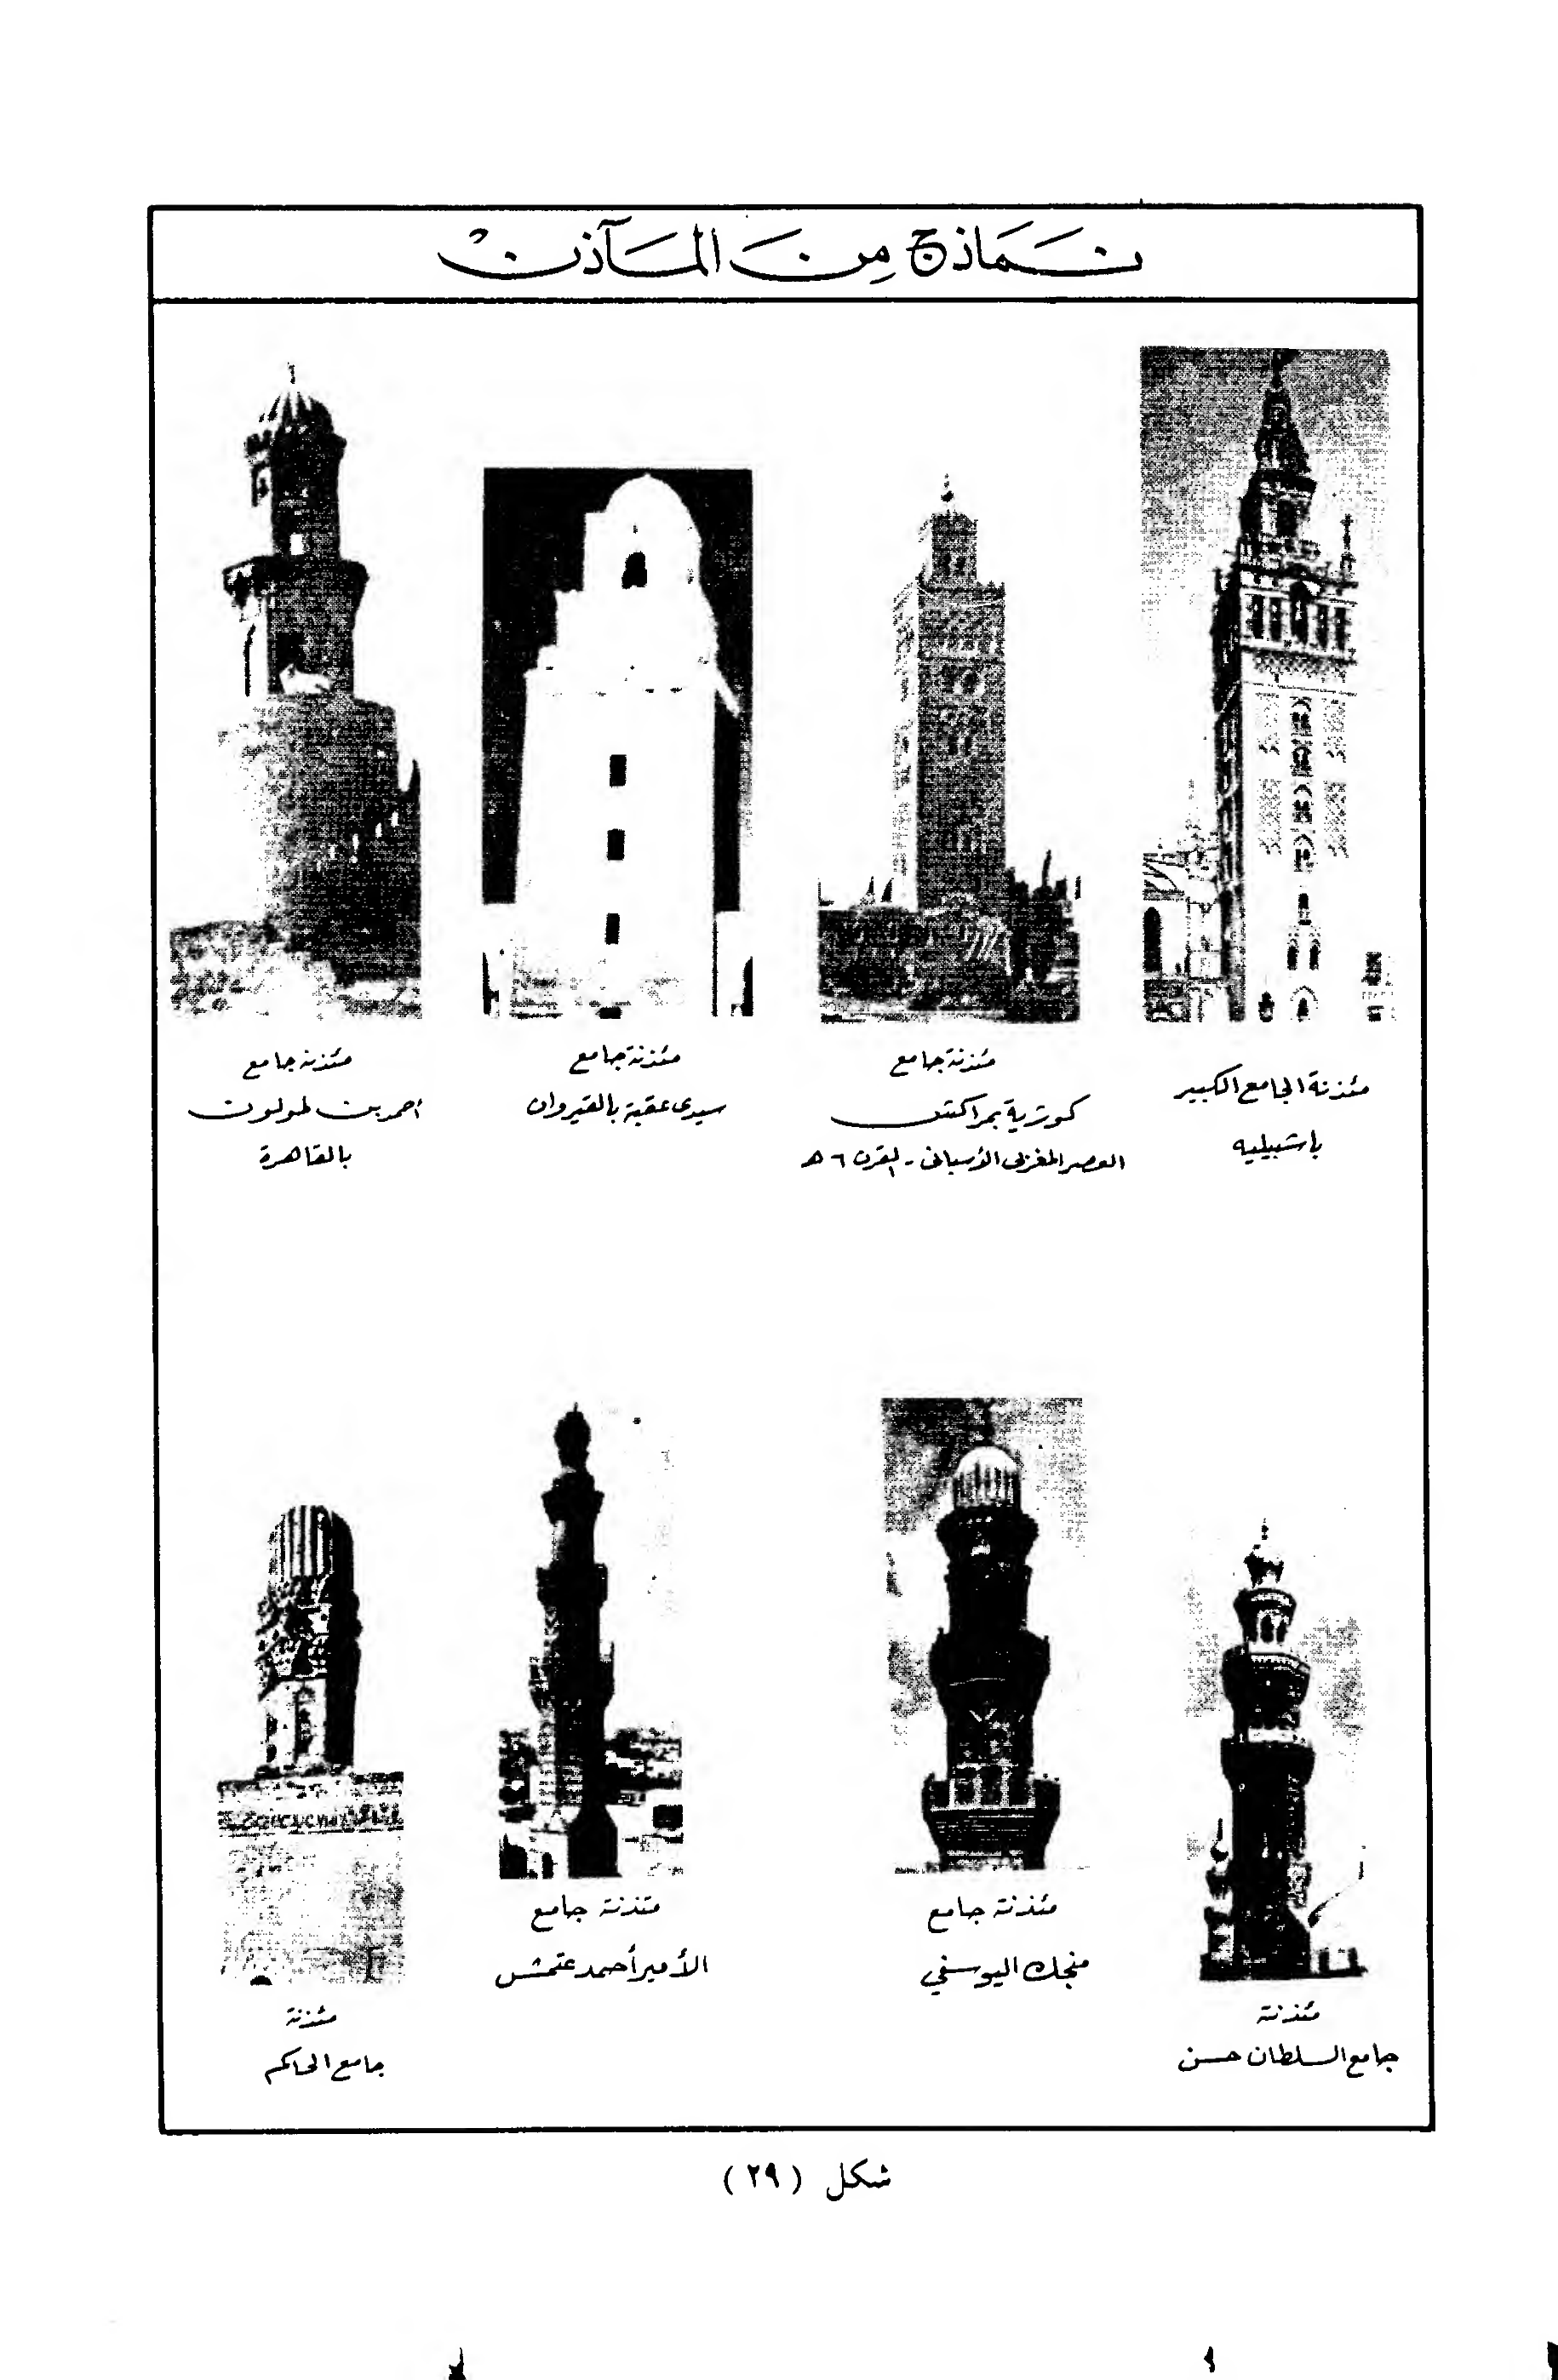 نماذج من المآذن
مئذنة الجامع الكبير
باشبيليه
مئذنة جامع
كوتزية بمراكش
العصر المغربى الأسبانى - القرن ٦ هـ
مئذنة جامع
سيدى عقبة بالقيروان
مئذنة جامع
أحمد بن طولون
بالقاهرة
مئذنة
جامع السلطان حسن
مئذنة جامع
منجك اليوسفي
مئذنة جامع
الأمير أحمد عتمش
مئذنة
جامع الحاكم
شكل ( ٢٩ )